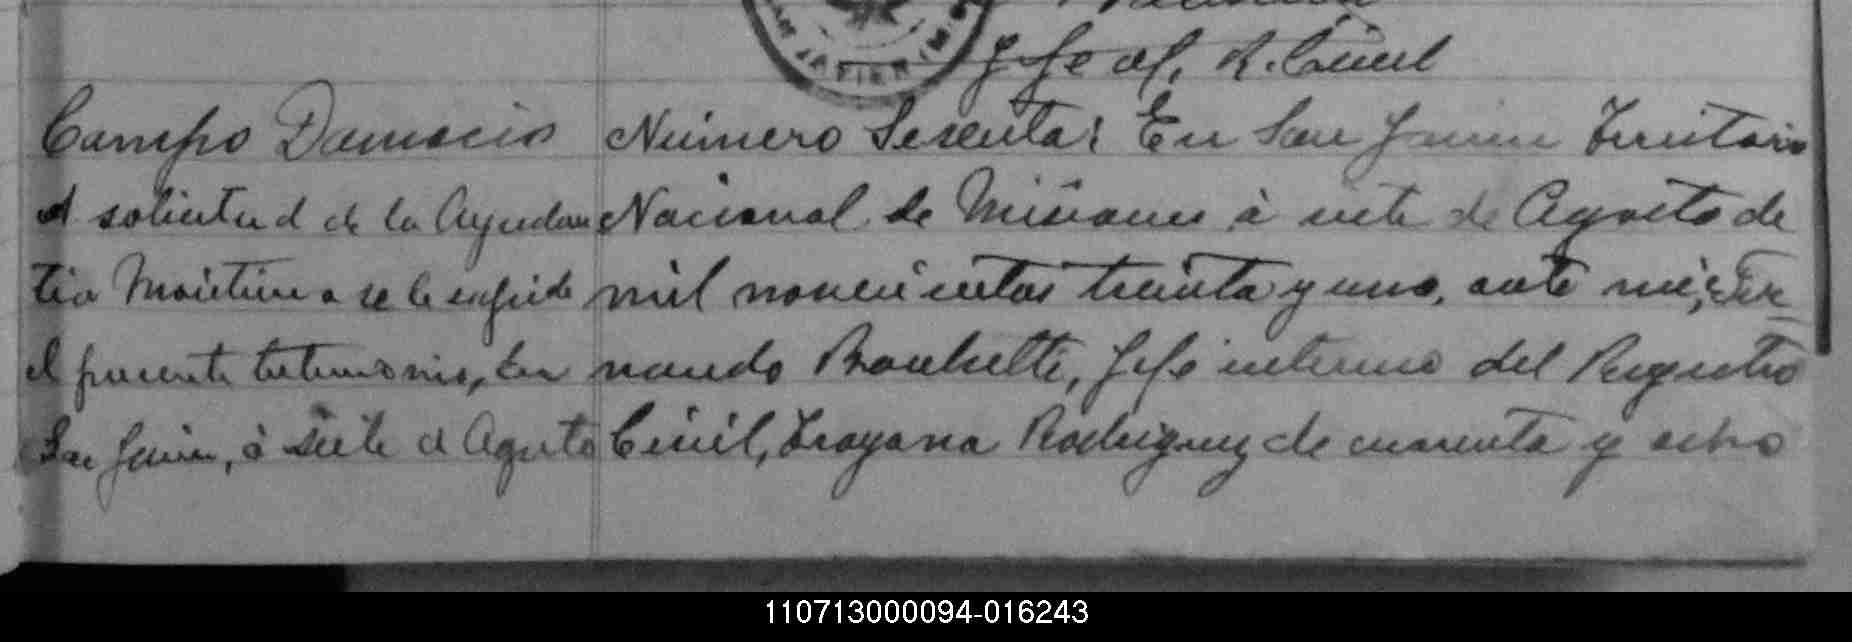 Jefe of. R. Civil
Campo Damacio
A solicitud de la Ayudan
tia Maritima se le expide
el presente testimonio, En
San Javier, á siete de Agosto
Número Sesenta: En San Javier Territorio
Nacional de Misiones á siete de Agosto de
mil novecientos treinta y uno, ante mi, Fer=
nando Bouchette, Jefe interino del Registro
Civil, Trayana Rodriguez de cuarenta y ocho
110713000094-016243